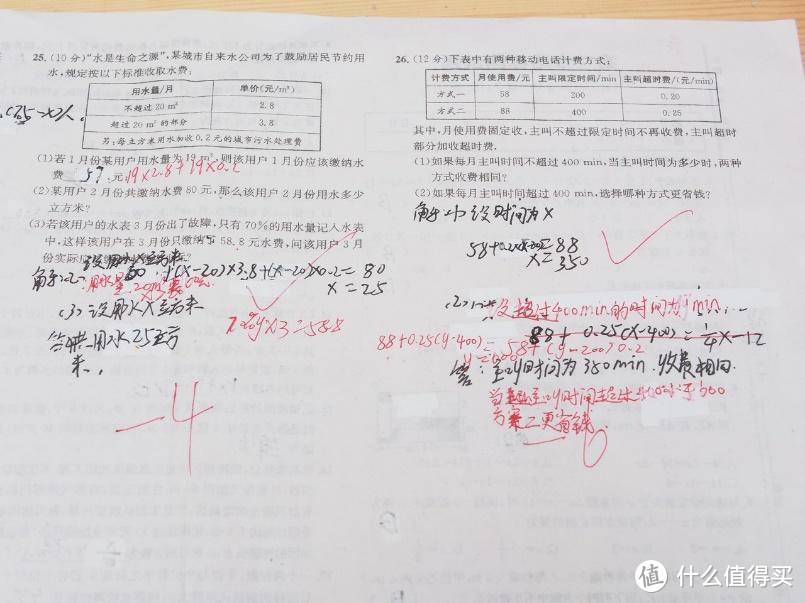 25.(10分)“水是生命之源”,某城市自来水公司为了鼓励居民节约用
水,规定按以下标准收取水费:
用水量/月 单价(元/m³)
不超过20 m³ 2.8
超过20 m³的部分 3.8
另:每立方米用水加收0.2元的城市污水处理费
(1)若1月份某用户用水量为19 m³,则该用户1月份应该缴纳水
费 57 元 19×2.8+19×0.2
(2)某用户2月份共缴纳水费80元,那么该用户2月份用水多少
立方米?
(3)若该用户的水表3月份出了故障,只有70%的用水量记入水表
中,这样该用户在3月份只缴纳了58.8元水费,问该用户3月
份实际应
x=25
(3)设用水x立方米
答:共用水25立方
米.
-4
26.(12分)下表中有两种移动电话计费方式:
计费方式 月使用费/元 主叫限定时间/min 主叫超时费/(元/min)
方式一 58 200 0.20
方式二 88 400 0.25
其中,月使用费固定收,主叫不超过限定时间不再收费,主叫超时
部分加收超时费.
(1)如果每月主叫时间不超过400 min,当主叫时间为多少时,两种
方式收费相同?
(2)如果每月主叫时间超过400 min,选择哪种方式更省钱?
解:(1)设时间为x
=88
x=350
(2)
设超过400min的时间为y min
88+0.25(x-400)=1/4x-12
88+0.25(y-400)=58+(y-200)0.2
答:主叫时间为350min.收费相同.
方案二更省钱.
-6
值 什么值得买